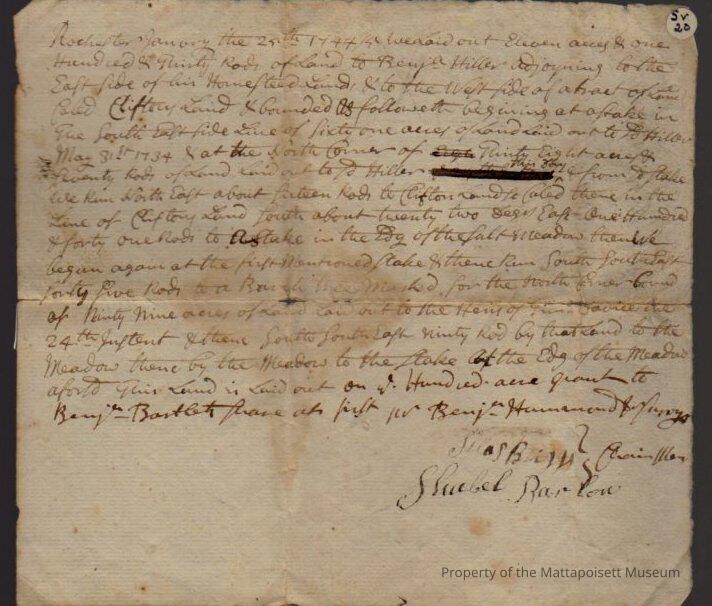 Sv
20
Rochester Janury the 25th 1744/5 we Laid out Eleven acres & one
Hundred & thirty Rods of Land to Benjn Hiller adjoyning to the
East Side of his Homestead Land & to the West side of a tract of Land
Caled Cliftons Land & bounded as followeth begining at a Stake in
the South East side Line of Sixty one acres of Land Laid out to sd Hiller
May 31st 1734 & at the North Corner of Thirty Eight acres &
Seventy Rods of Land Laid out to sd Hiller this Day & from sd Stake
We Run North East about sixteen Rods to Clifton Land so Caled thene in the
Line of Cliftons Land South about twenty two degrs East One Hundred
& forty one Rods to a Stake in the Edg of the Salt Meadow then We
began again at the first Mentioned Stake & thene Run South South East
forty five Rods to a Tree Marked for the North Corner bound
of Ninty Nine acres of Land Laid out to the Heirs of the
24th Instent & thene South South East Ninty Rod by that Land to the
Meadow thene by the Meadow to the Stake at the Edg of the Meadow
aforsd This Land is Laid out on ye Hundred acre grant to
Benjn Bartlets share at first pr Benjn Hammond
Chain Men
Shubel Barlow
Property of the Mattapoisett Museum